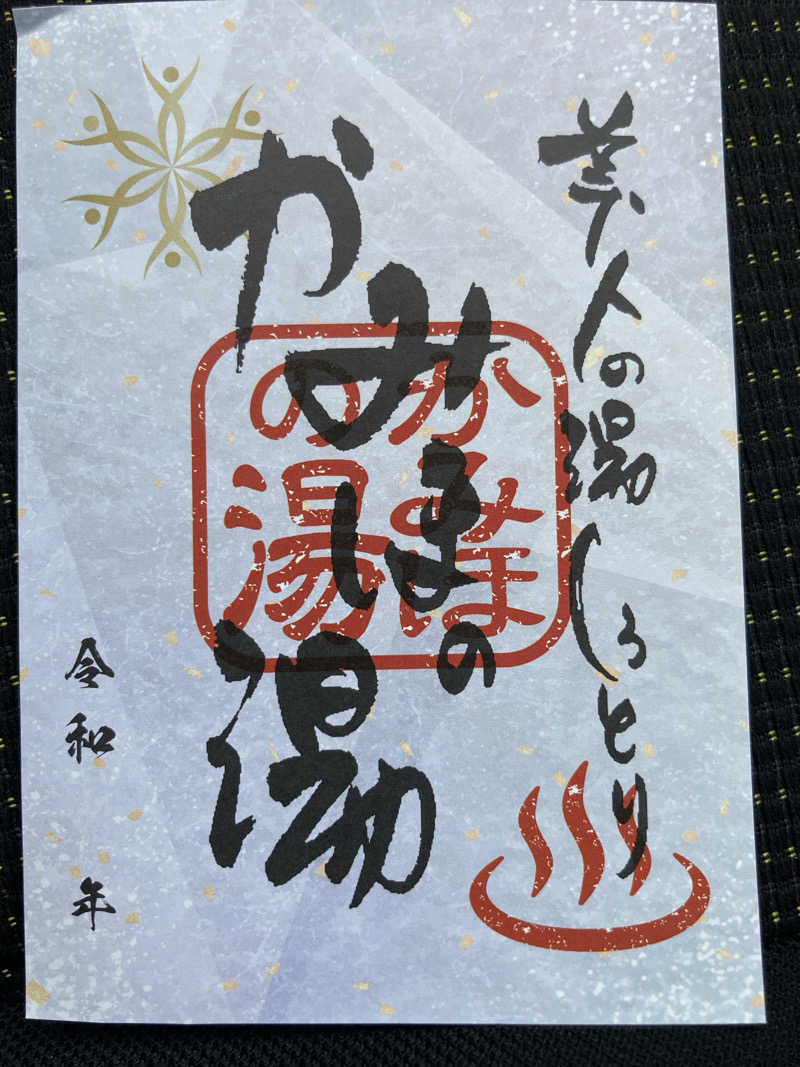 美人の湯しろとり
かみほの湯
かみほ
の湯
令和　年